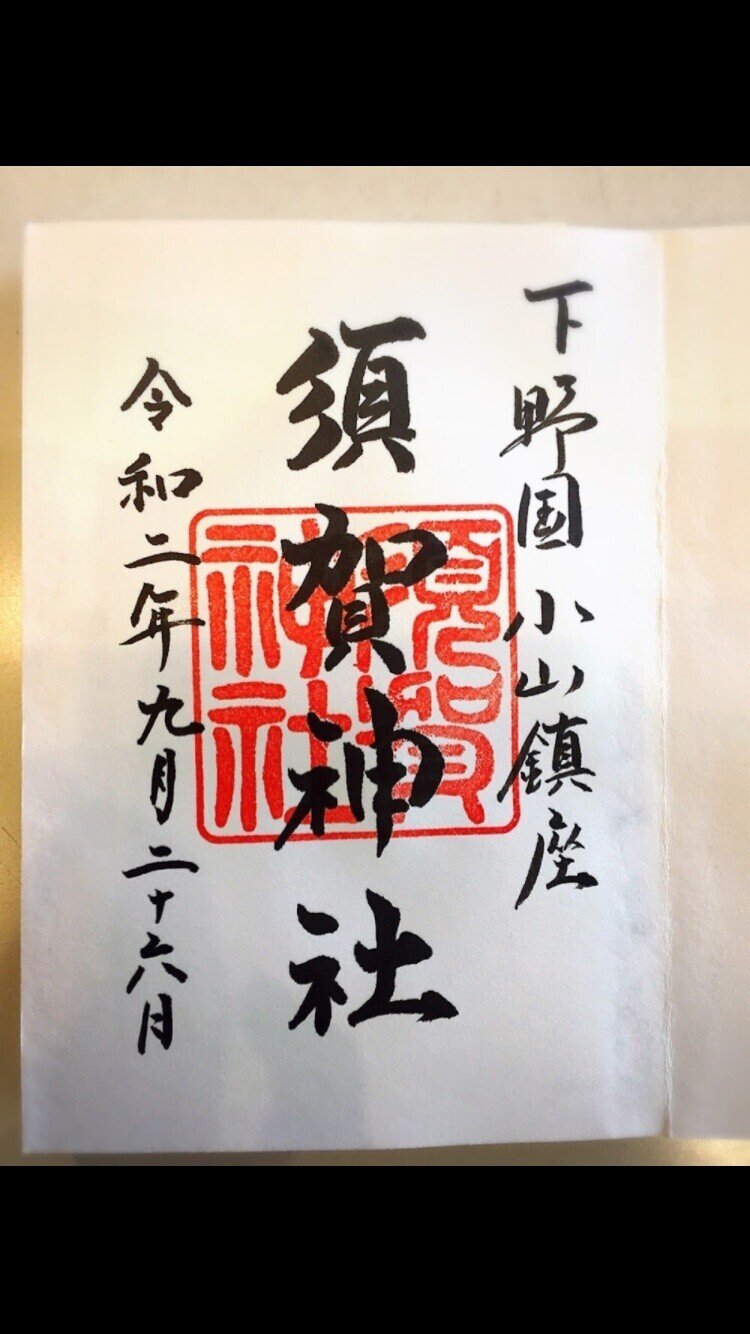 下野国小山鎮座
須賀神社
令和二年九月二十六日
須賀
神社